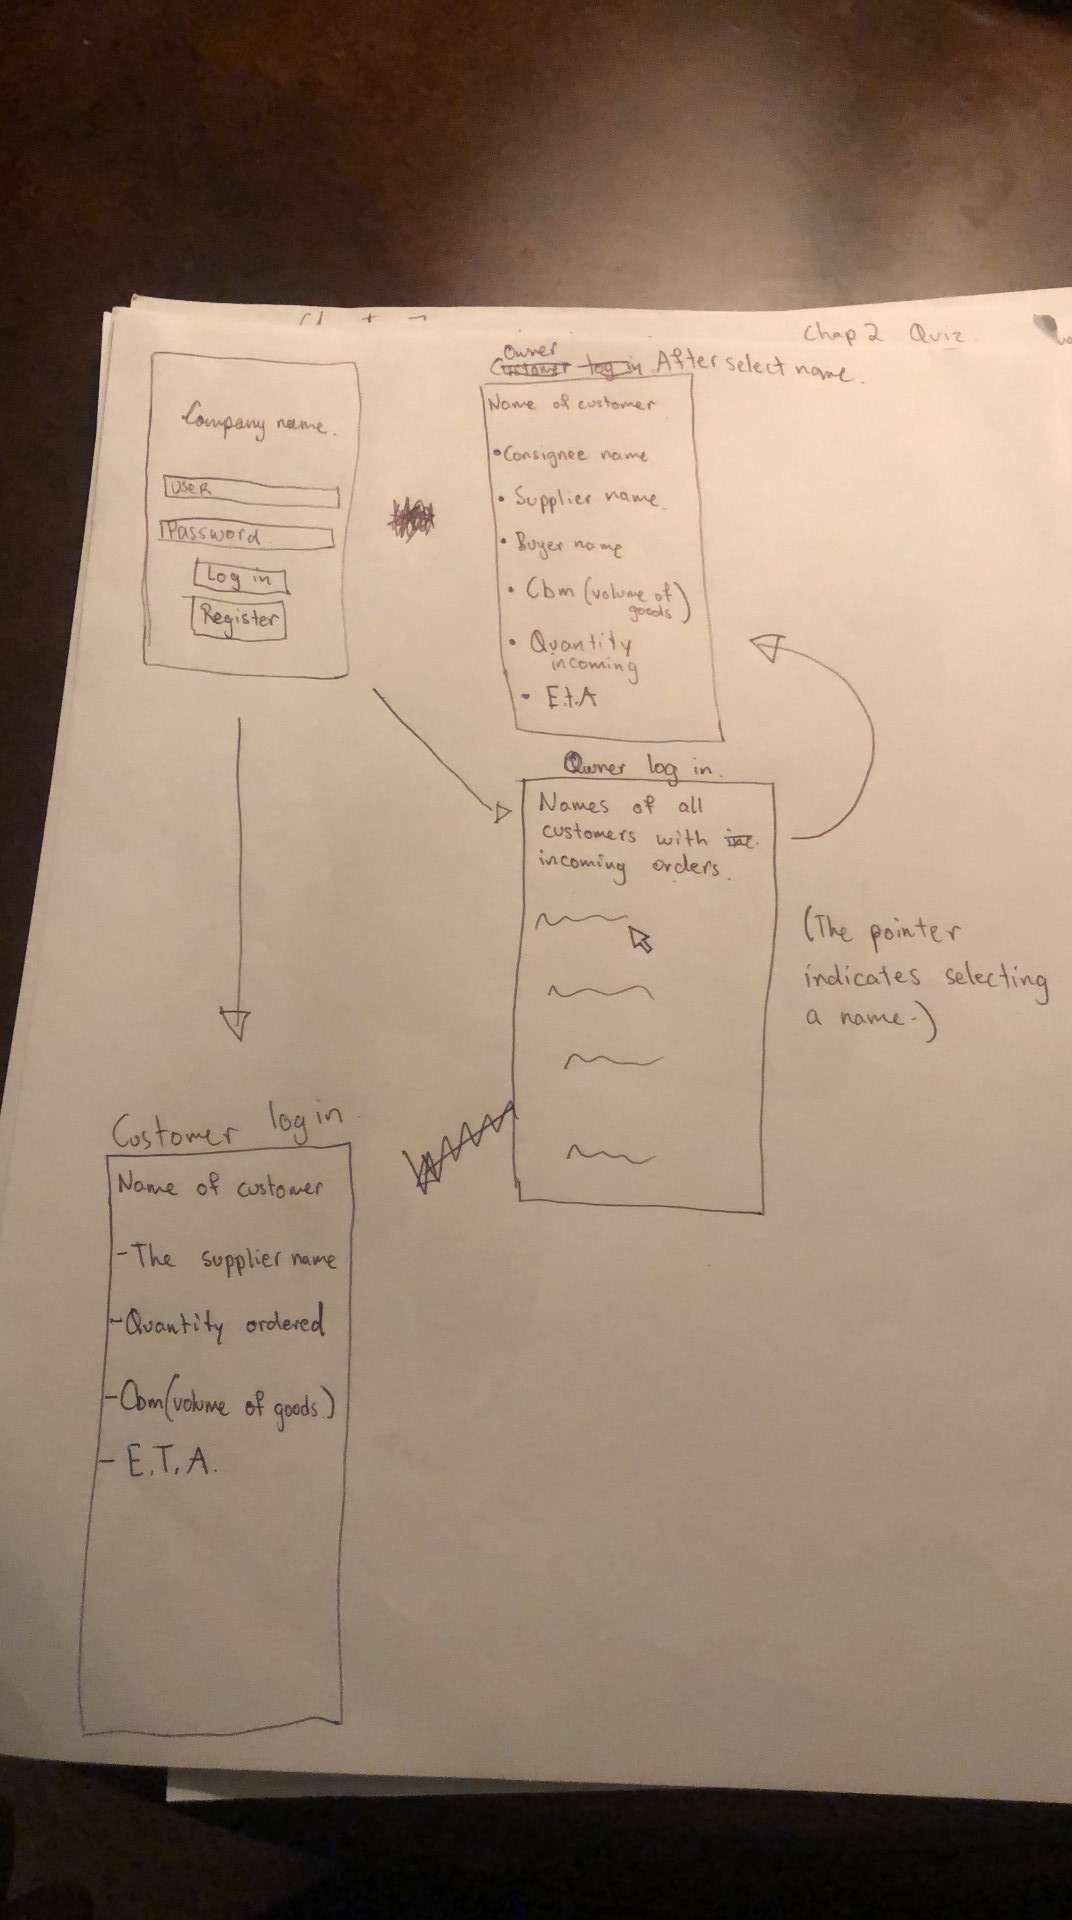 Chap 2 Quiz
Company name.
USER
Password
Log in
Register
Owner
Customer log in After select name.
Name of customer
• Consignee name
• Supplier name.
• Buyer name
• Cbm (volume of
goods)
• Quantity
incoming
• E.t.A
Owner log in.
Names of all
customers with inc.
incoming orders.
(The pointer
indicates selecting
a name.)
Customer log in
Name of customer
- The supplier name
- Quantity ordered
- Cbm (volume of goods.)
- E.T.A.